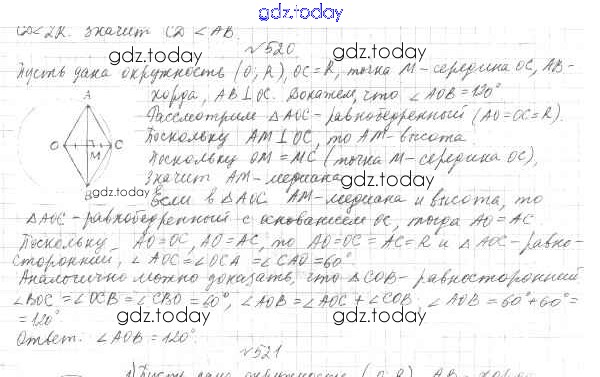 gdz.today
CD < 2R. значит CD < AB.
№520
gdz.today gdz.today
Пусть дана окружность (O, R), OC = R, точка M - середина OC, AB -
хорда, AB⊥OC. Докажем, что ∠AOB = 120°
gdz.today
A
Рассмотрим △AOC - равнобедренный (AO = OC = R).
Поскольку AM⊥OC, то AM - высота.
O M C
Поскольку OM = MC (точка M - середина OC),
gdz.today
значит AM - медиана.
B
gdz.today
Если в △AOC AM - медиана и высота, то
△AOC - равнобедренный с основанием OC, тогда AO = AC
Поскольку AO = OC, AO = AC, то AO = OC = AC = R и △AOC - равно-
gdz.today gdz.today
сторонний, ∠AOC = ∠OCA = ∠CAO = 60°.
Аналогично можно доказать, что △COB - равносторонний
∠BOC = ∠OCB = ∠CBO = 60°, ∠AOB = ∠AOC + ∠COB. ∠AOB = 60° + 60° =
= 120°
gdz.today gdz.today
Ответ. ∠AOB = 120°.
№521
gdz.today